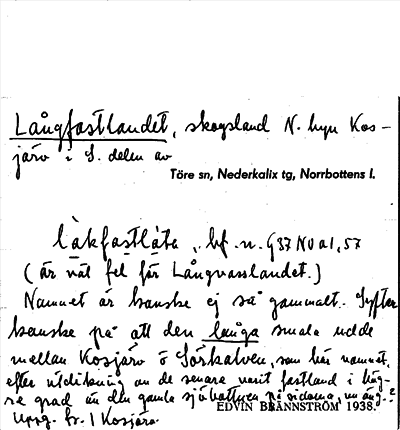 Långfastlandet, skogsland N. byn Kos-
järv i S. delen av
Töre sn, Nederkalix tg, Norrbottens l.
làkfastláta, bf. n.
(är väl fel för Långvasslandet.)
Namnet är kanske ej så gammalt. Syftar
kanske på att den långa smala udde
mellan Kosjärv o Sörkalven, som bär namnet,
efter utdikning av de senare varit fastland i läng-
re grad än den gamla sjöbottnen på sidorna, en äng?
EDVIN BRÄNNSTRÖM 1938.
Uppg. fr. Kosjärv